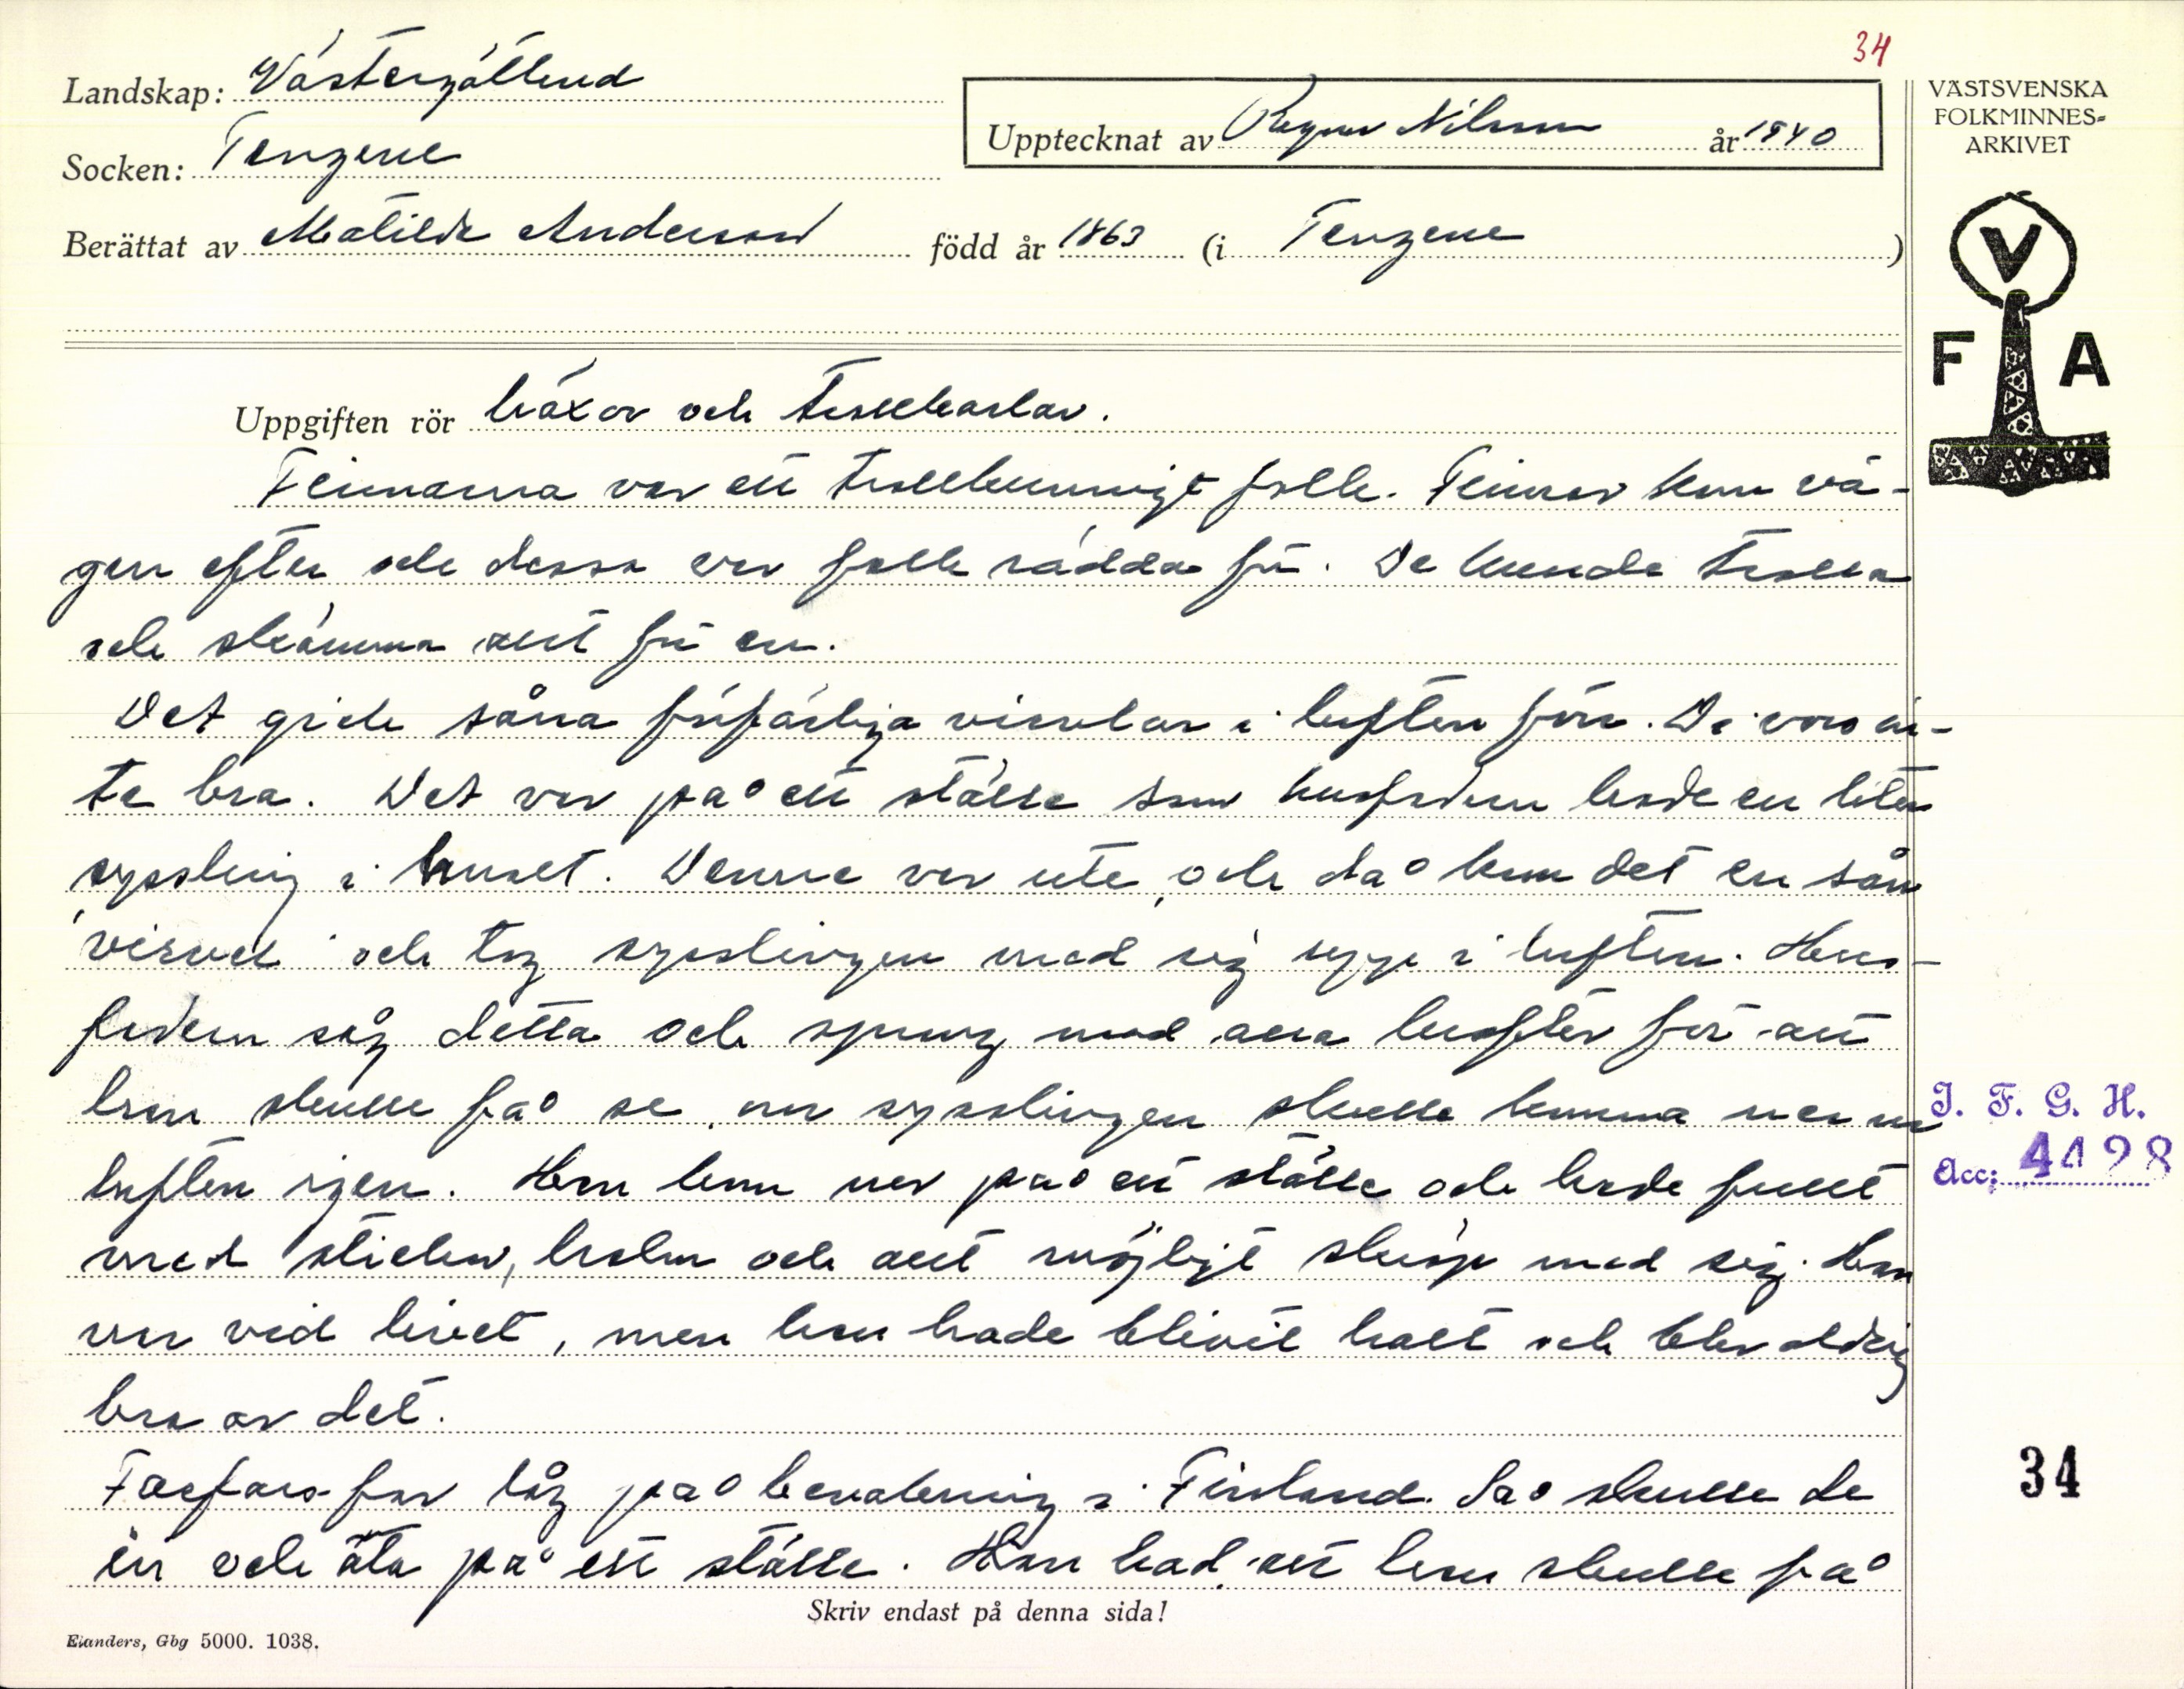 34
Landskap: Västergötland
Upptecknat av Ragnar Nilsson år 1940
VÄSTSVENSKA
FOLKMINNES-
ARKIVET
Socken: Tengene
Berättat av Matilda Anderson född år 1863 (i Tengene)
V
F A
Uppgiften rör häxor och trollkarlar.
Finnarna var ett trollkunnigt folk. Finnar kom vä-
gen efter och dessa var folk rädda för. De kunde trolla
och skrämma allt för en.
Det gick såna förfärliga virvlar i luften förr. De voro in-
te bra. Det var på ett ställe som husfadern hade en liten
syssling i huset. Denne var ute, och då kom det en sån
virvel och tog sysslingen med sig upp i luften. Hus-
fadern såg detta och sprang med ena husfler för att
han skulle få se om sysslingen skulle komma ner ur
luften igen. Han kom ner på ett ställe och hade fullt
med stickor, halm och allt möjligt skräp med sig. Han
var vid livet, men han hade blivit halt och blev aldrig
bra av det.
Farfars far låg på bevakning i Finland. Så skulle de
in och äta på ett ställe. Han bad att han skulle få
Skriv endast på denna sida!
Elanders, Gbg 5000. 1038.
I. F. G. H.
Acc: 4498
34